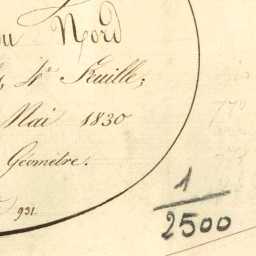 du Nord
4e Feuille;
Mai 1830
Géomètre.
931.
1
2500